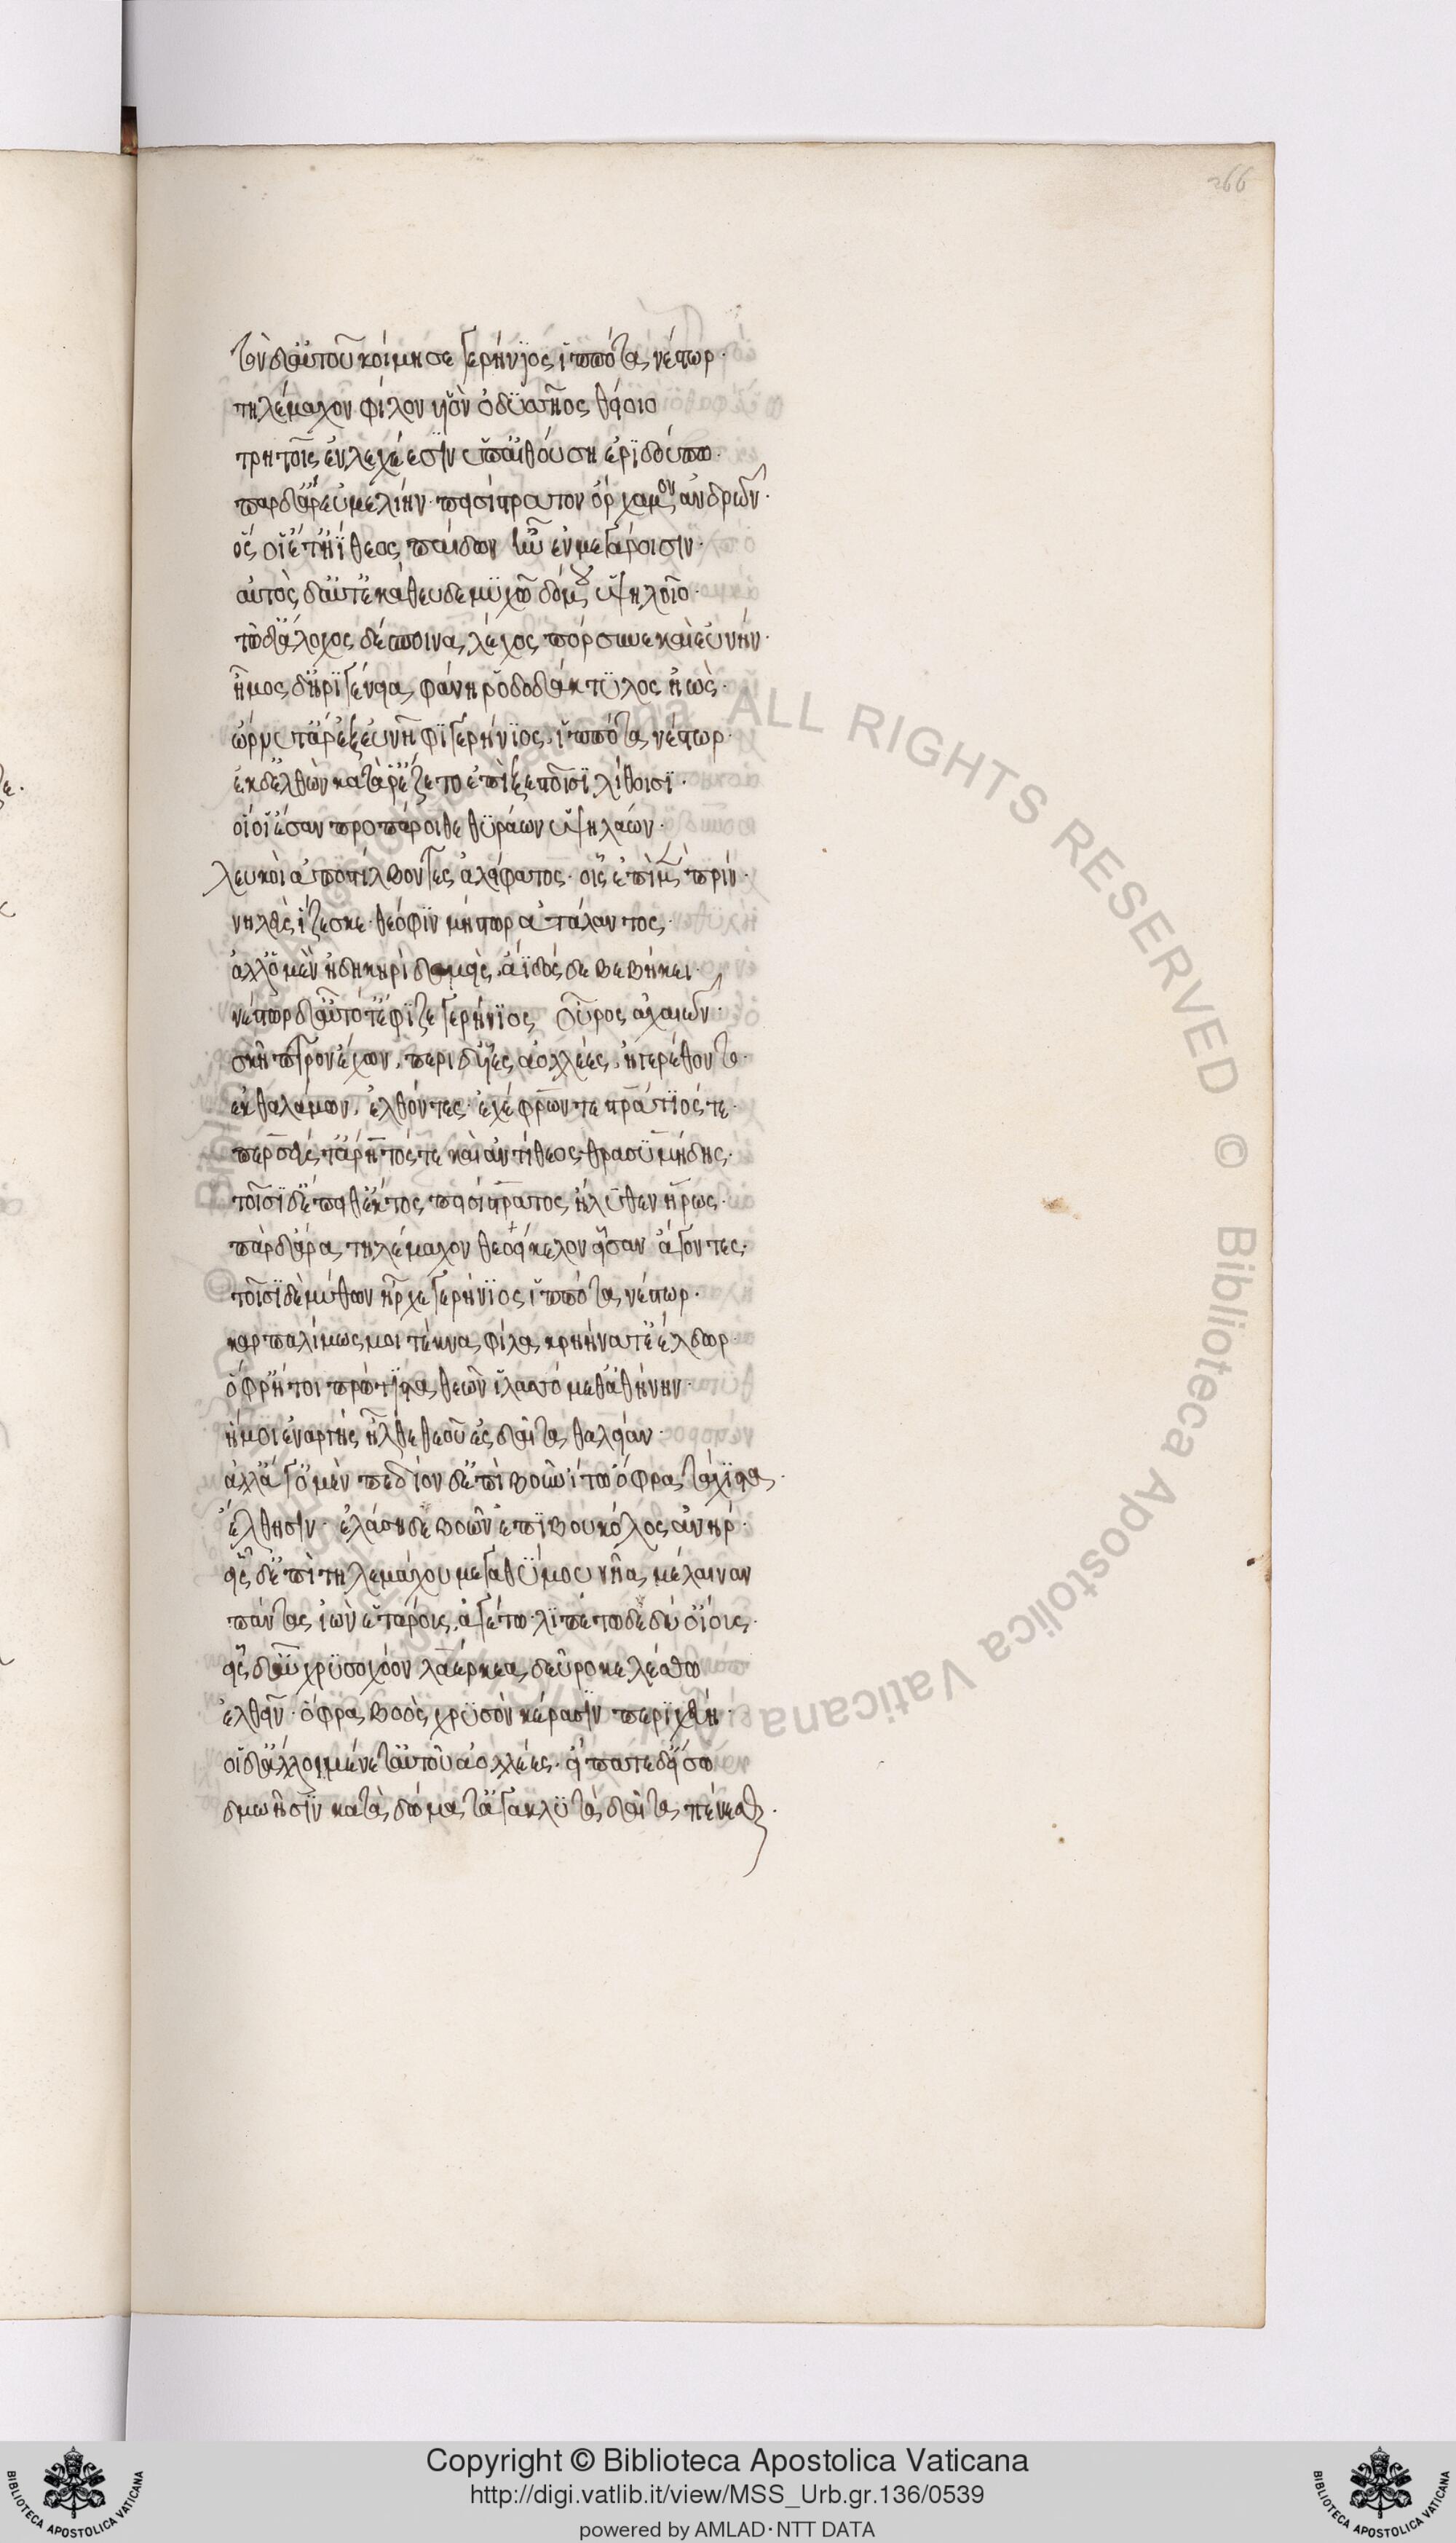 266
τὸν δ' αὐτοῦ κοίμησε γερήνϊος ἱππότα νέστωρ·
τηλέμαχον φίλον υἱὸν ὀδυσσῆος θείοιο
τρητοῖς ἐν λεχέεσσιν ὑπ' αἰθούσῃ ἐριδούπω·
παρ δ' ἄρ' ἐϋμμελίην πεισίστρατον ὄρχαμον ἀνδρῶν·
ὅς οἱ ἔτ' ἠΐθεος παίδων ἦν ἐν μεγάροισιν·
αὐτὸς δ' αὖτε κάθευδε μυχῶ δόμου ὑψηλοῖο·
τῶ δ' ἄλοχος δέσποινα λέχος πόρσυνε καὶ εὐνήν·
ἦμος δ' ἠριγένεια φάνη ῥοδοδάκτυλος ἠώς·
ὤρνυτ' ἄρ' ἐξ εὐνῆφι γερήνϊος ἱππότα νέστωρ·
ἐκ δ' ἐλθὼν κατ' ἄρ' ἕζετο ἐπὶ ξεστοῖσι λίθοισι·
οἵ οἱ ἔσαν προπάροιθε θυράων ὑψηλάων·
λευκοὶ ἀποστίλβοντες ἀλείφατος· οἷς ἐπὶ μὲν πρίν·
νηλεὺς ἵζεσκε· θεόφιν μήστωρ ἀτάλαντος·
ἀλλ' ὁ μὲν ἤδη κηρὶ δαμεὶς ἄϊδός δε βεβήκει·
νέστωρ δ' αὖ τότ' ἔφιζε γερήνϊος οὖρος ἀχαιῶν·
σκῆπτρον ἔχων. περὶ δ' υἷες ἀολλέες ἠγερέθοντο·
ἐκ θαλάμων ἐλθόντες· ἐχέφρων τε στρατίος τε·
περσεύς τ' ἄρητός τε καὶ ἀντίθεος θρασυμήδης·
τοῖσι δ' ἔπειθ' ἕκτος πεισίστρατος ἤλυθεν ἥρως·
πὰρ δ' ἄρα τηλέμαχον θεοείκελον εἷσαν ἄγοντες·
τοῖσι δὲ μύθων ἦρχε γερήνϊος ἱππότα νέστωρ·
καρπαλίμως μοι τέκνα φίλα κρηήνατ' ἐέλδωρ·
ὄφρ' ἤτοι πρώτιστα θεῶν ἱλάσσομ' ἀθήνην·
ἥ μοι ἐναργὴς ἦλθε θεοῦ ἐς δαῖτα θάλειαν·
ἀλλ' ἄγ' ὁ μὲν πεδίον δ' ἐπὶ βοῦν ἴτω ὄφρα τάχιστα
ἔλθησιν· ἐλάση δὲ βοῶν ἐπιβουκόλος ἀνήρ·
εἷς δ' ἐπὶ τηλεμάχου μεγαθύμου νῆα μέλαιναν
πάντας ἰὼν ἑτάρους ἀγέτω· λιπέτω δὲ δύ' οἴους·
εἷς δ' αὖ χρυσοχόον λαέρκεα δεῦρο κελέσθω
ἐλθεῖν· ὄφρα βοὸς χρυσὸν κέρασιν περιχεύη·
οἱ δ' ἄλλοι μένετ' αὐτοῦ ἀολλέες· εἴπατε δ' εἴσω
δμωῆσιν κατὰ δώματ' ἀγακλυτὰ δαῖτα πένεσθαι·
© Biblioteca Apostolica Vaticana ALL RIGHTS RESERVED
BIBLIOTECA APOSTOLICA VATICANA
Copyright © Biblioteca Apostolica Vaticana
http://digi.vatlib.it/view/MSS_Urb.gr.136/0539
powered by AMLAD·NTT DATA
BIBLIOTECA APOSTOLICA VATICANA